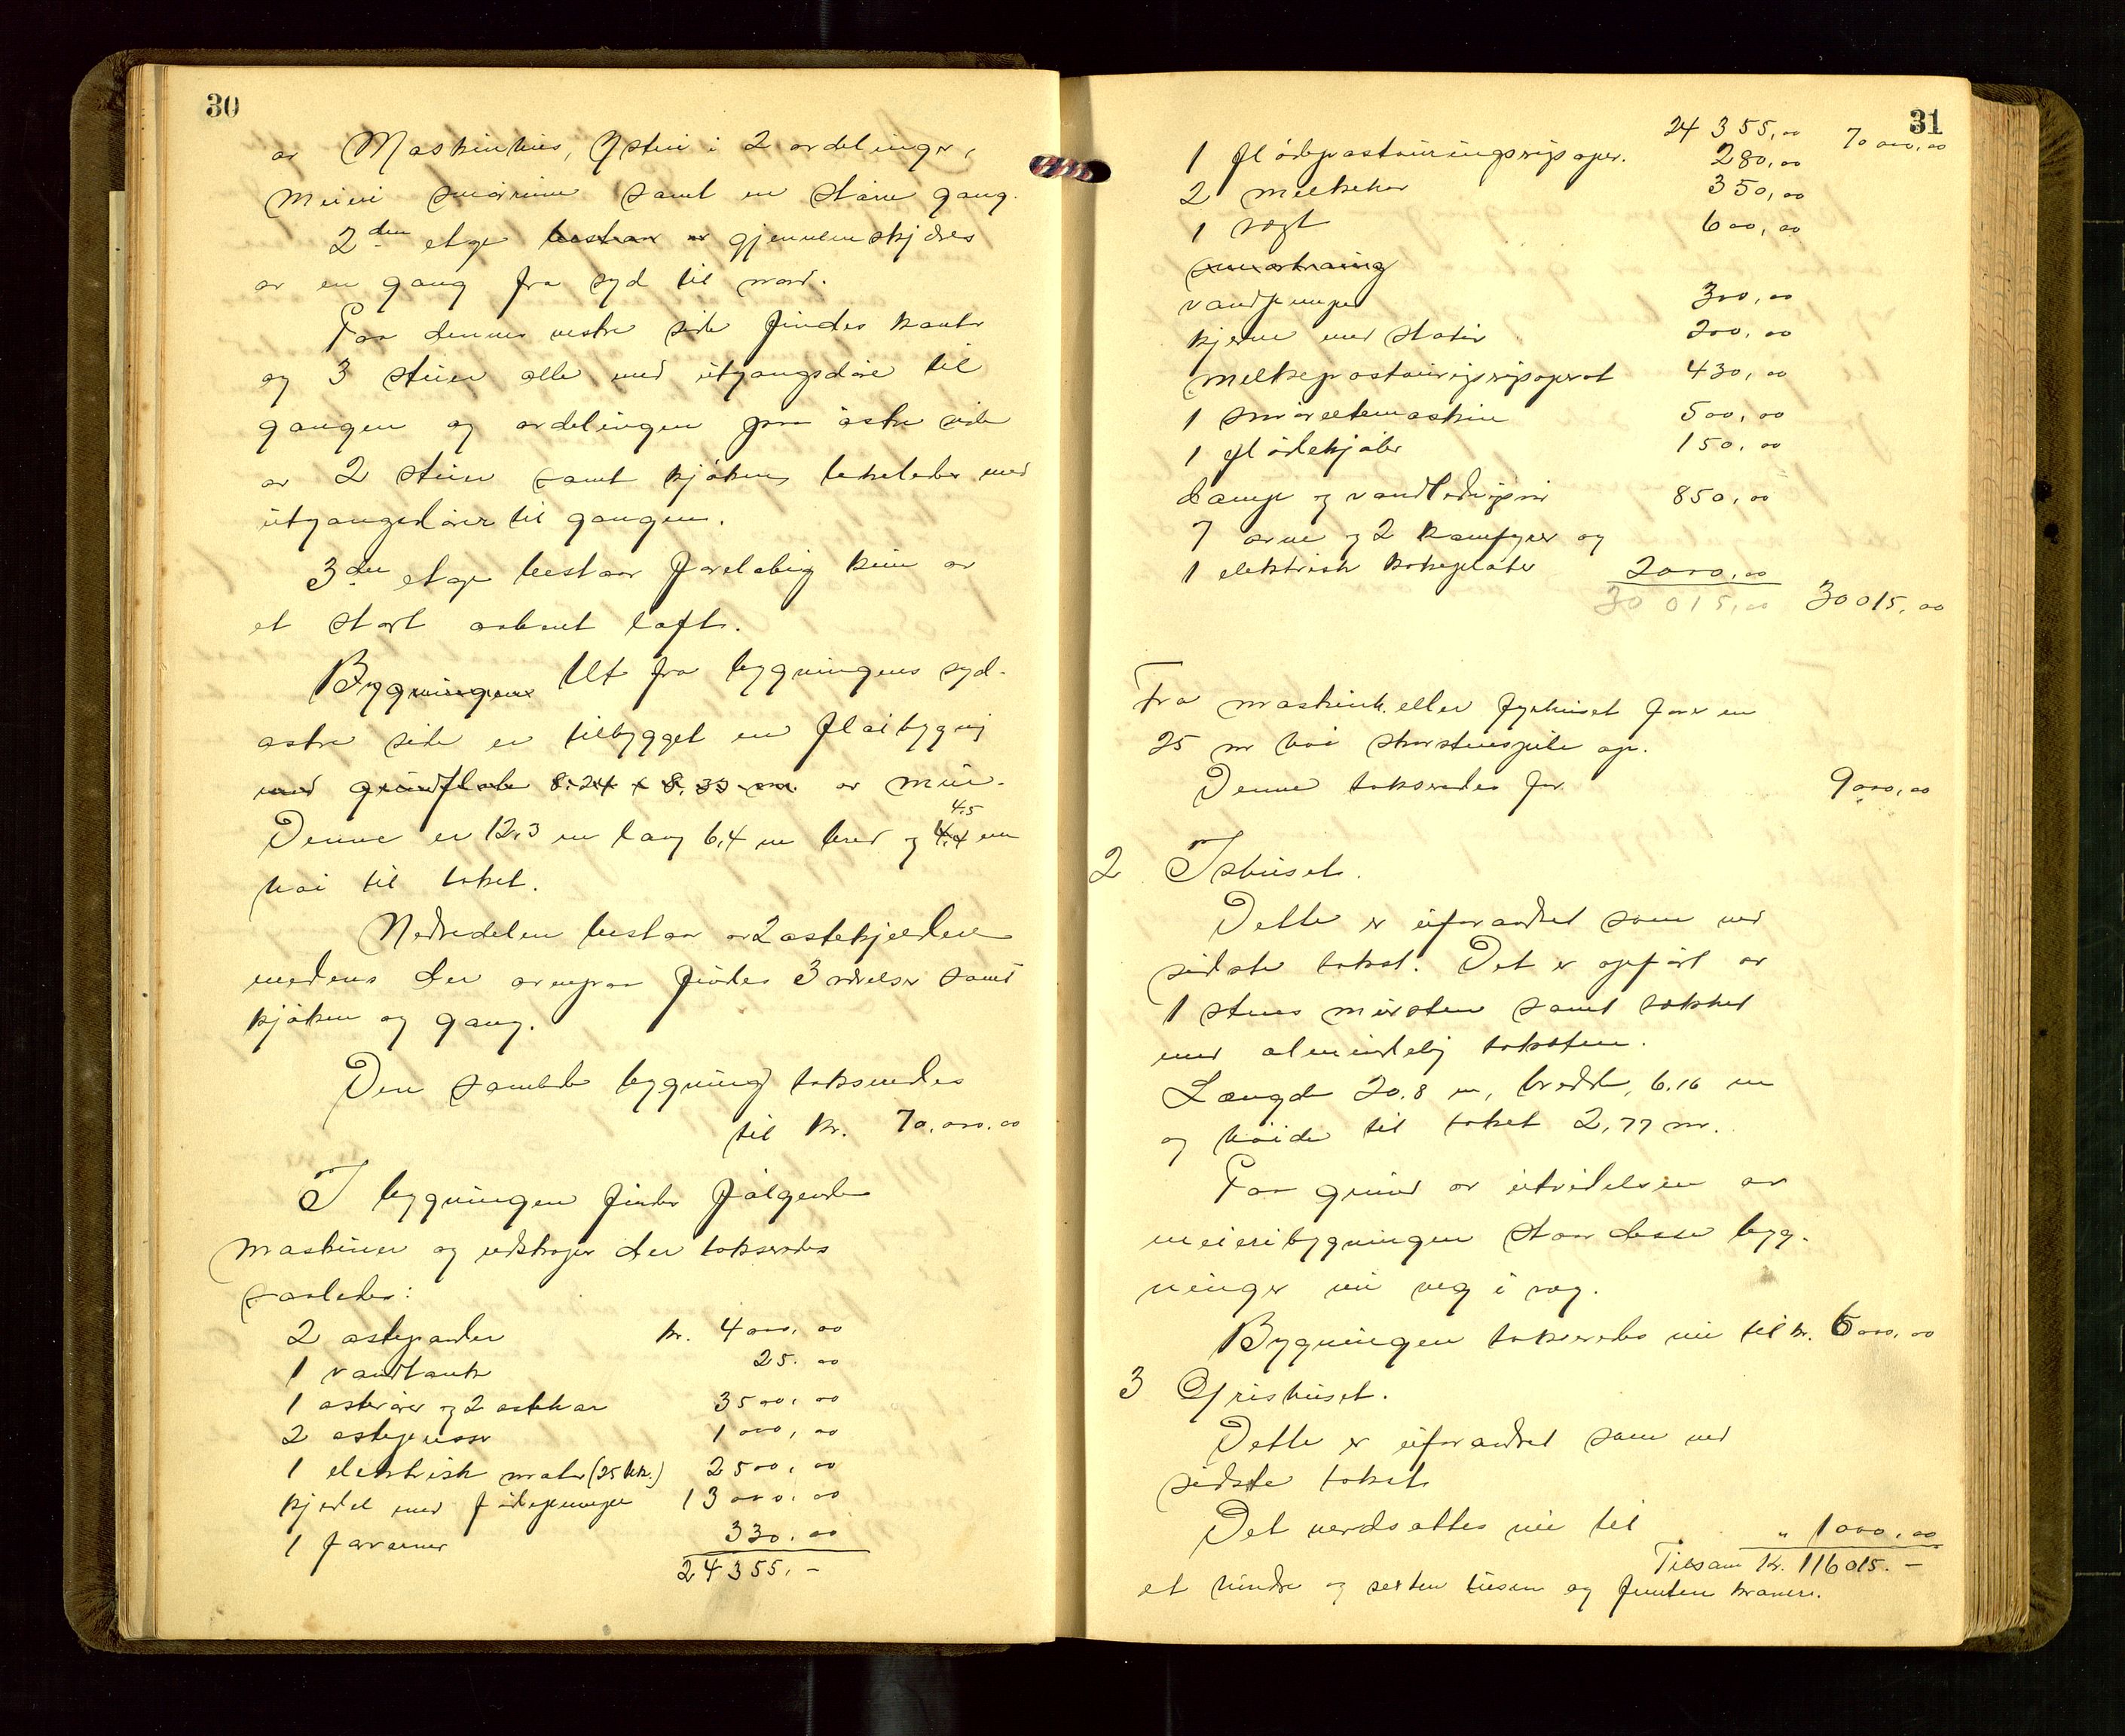 30
av Maskinhus, Ysteri i 2 avdelinger,
meieri smørrum samt en større gang.
2den etage bestaar er gjennemskjæres
av en gang fra syd til nord.
Paa dennes vestre side findes kontor
og 3 stuer alle med utgangsdøre til
gangen og avdelingen paa østre side
av 2 stuer samt kjøkkens beleleder med
utgangsdører til gangen.
3die etage bestaar foreløbig kun av
et stort aabent loft.
Bygningens Ut fra bygningens syd-
østre side er tilbygget en fløibygning
med grundflate 8.24 x 8.33 m. av mur.
Denne er 12.3 m lang 6,4 m bred og 4.4 4.5 m
høi til taket.
Nedredelen bestaar av 2 ostekjeldere
medens der ovenpaa findes 3 værelser samt
kjøken og gang.
Den samlede bygning takseredes
til kr. 70.000.00
I bygningen findes følgende
maskiner og redskaper der takseredes
saaledes:
2 ostepander kr. 4000,00
1 vandtank 25.00
1 osterører og 2 ostekar 3500,00
2 ostepresser 1000,00
1 elektrisk motor (25 hk.) 2500,00
kjedel med fødepumpe 13000,00
1 forvarmer 330.00
24355.-
31
24 355,00 70 000,00
1 fløtepastøuriseringsaper. 280,00
2 melkekar 350,00
1 vægt 600,00
vandpumpe 300,00
kjerne med stativ 200,00
melkepastøuriseringsaperat 430,00
1 smøreltemaskin 500,00
1 fløtekjøler 150,00
damp og vandledninger 850,00
7 ovne og 2 komfyrer og
1 elektrisk kokeplater 2000,00
30 015,00 30 015,00
Fra maskinh. eller fyrhuset fører en
25 m høi skorstenspibe op.
Denne takseredes for 9000,00
2 Ishuset.
Dette er uforandret som ved
sidste takst. Det er opført av
1 stens mursten samt tækket
med almindelig taksten.
Længde 20.8 m, bredde, 6.16 m
og høide til taket 2,77 m.
Paa grund av utvidelsen av
meieribygningen staar disse byg-
ninger nu veg i veg.
Bygningen takseredes nu til kr. 6000,00
3 Grishuset.
Dette er uforandret som ved
sidste takst
Det verdsættes nu til " 1000,00
Tilsam Kr. 116015.-
et hundre og seksten tusen og femten kroner.